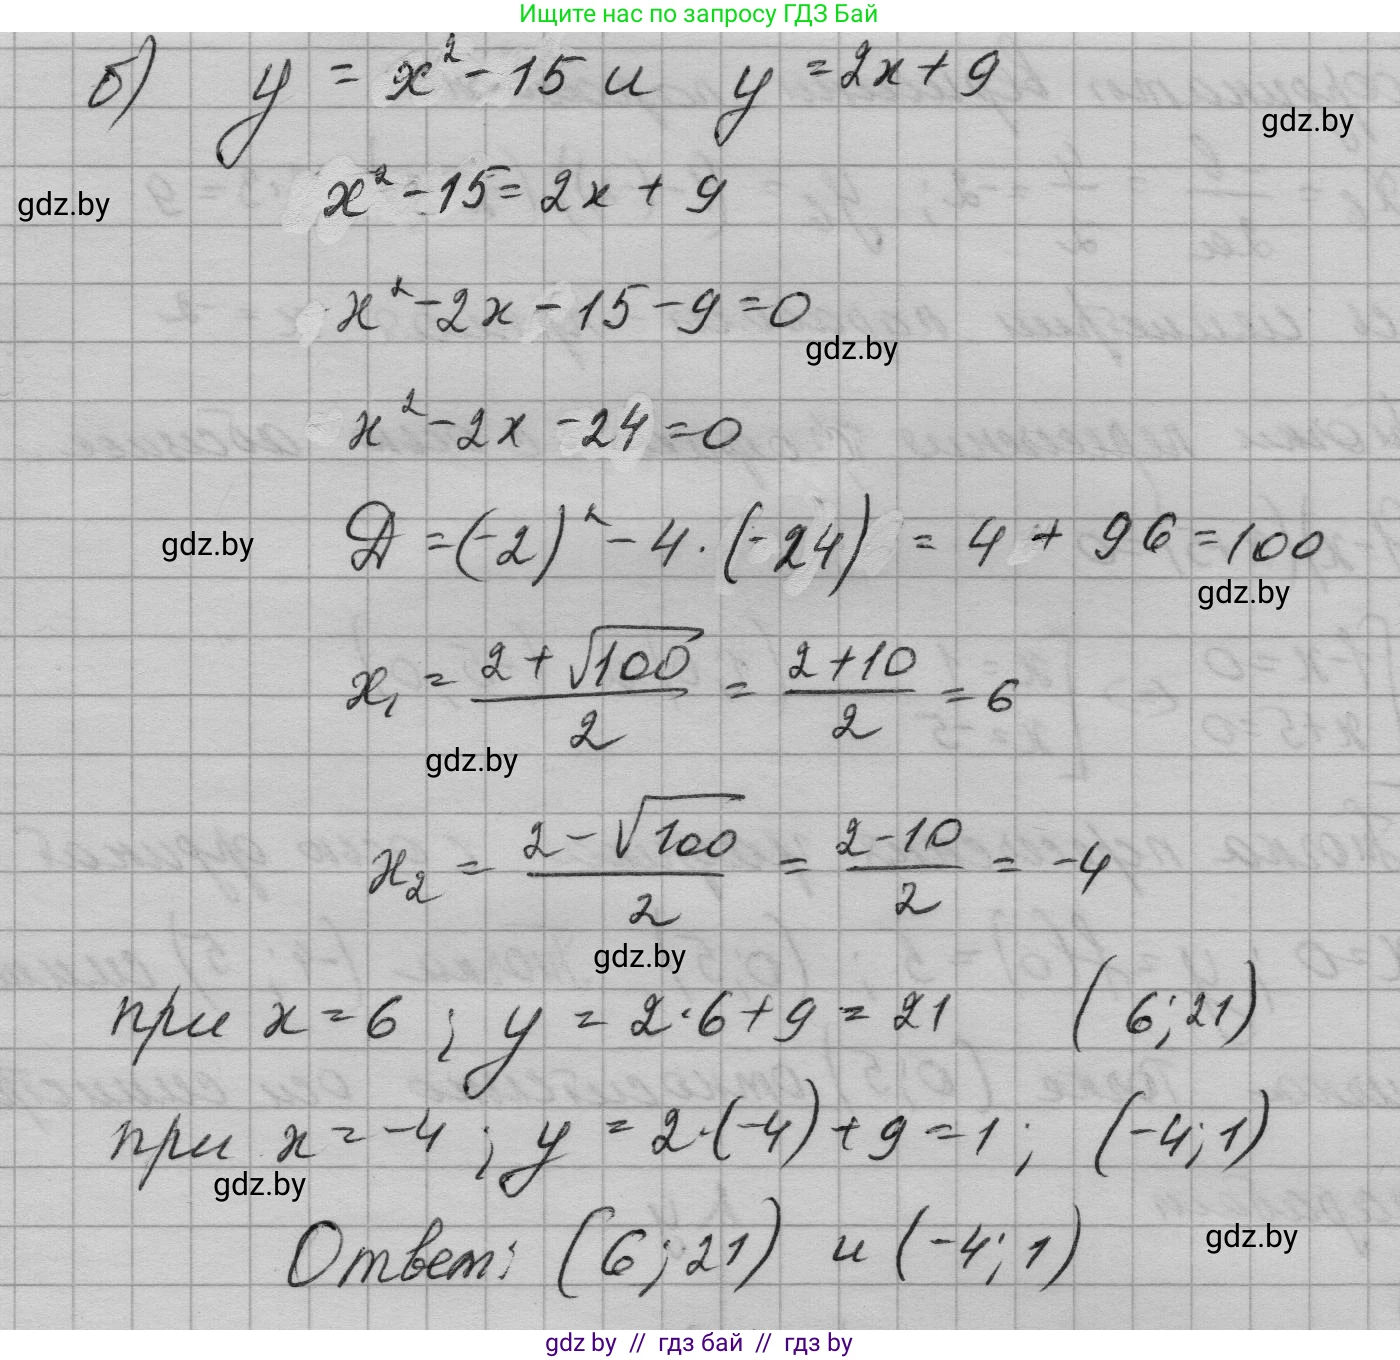 Ищите нас по запросу ГДЗ Бай
б) y = x² - 15 и y = 2x + 9
gdz.by
gdz.by
x² - 15 = 2x + 9
x² - 2x - 15 - 9 = 0
gdz.by
x² - 2x - 24 = 0
gdz.by
Д = (-2)² - 4 · (-24) = 4 + 96 = 100
gdz.by
x₁ = (2 + √100)/2 = (2 + 10)/2 = 6
gdz.by
x₂ = (2 - √100)/2 = (2 - 10)/2 = -4
gdz.by
при x = 6 ; y = 2 · 6 + 9 = 21 (6; 21)
при x = -4 ; y = 2 · (-4) + 9 = 1 ; (-4; 1)
gdz.by
Ответ: (6; 21) и (-4; 1)
gdz.by
gdz by // гдз бай // гдз by